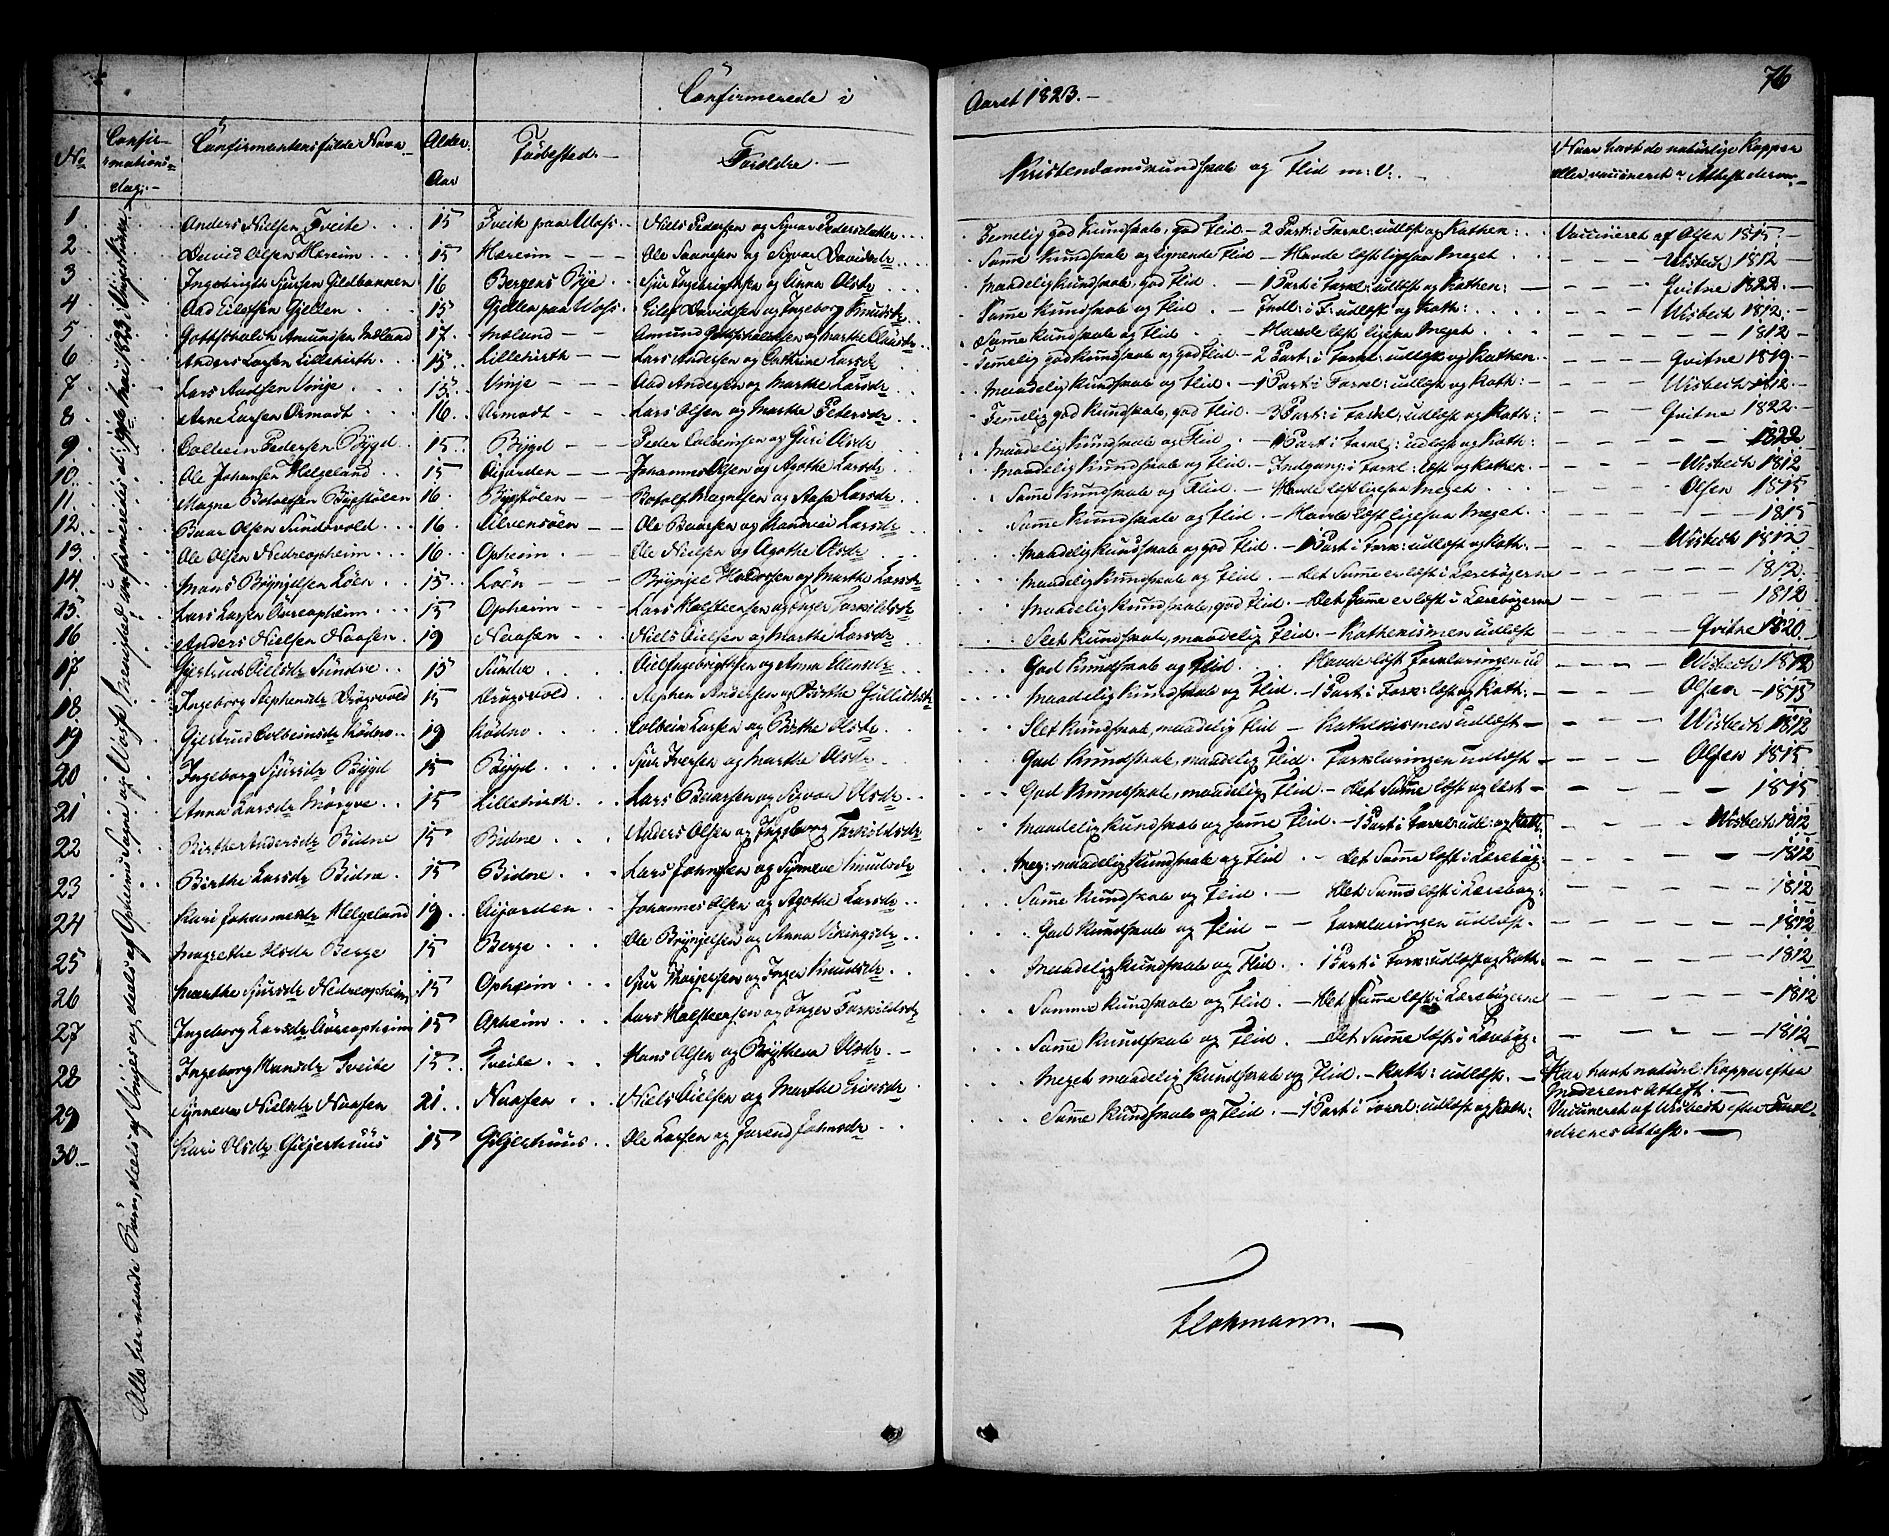 76
Confirmerede i Aaret 1823.
No
Confirmationsdag.
Confirmantens fulde Navn
Alder. Aar
Fødested.
Forældre.
Kristendomskundskab og Flid m: v:
Naar havt de naturlige Kopper eller vaccineret, Attest derom
1. Anders Nielsen Tveite 15 Tveite paa Voss. Niels Pedersen og Sigvor Pedersdatter Temelig god Kundskab, god Flid. 2 Part: i Forkl: udlæst og Kathe: Vaccineret af Olsen 1815.
2 David Olsen Hæreim 15 Hæreim Ole og Sigvor Davidsdr Samme Kundskab og lignende Flid Havde læst ligesaa Meget Wisbech 1812
3 Ingebrigt Sjursen 16 Bergens Bye Sjur Ingebrigtsen og Anna Olsdr Maadelig Kundskab, god Flid. 1 Part i Forkl: udlæst og Kathe: Qvitne 1822.
4 Aad Eilefsen Gjelden 15 Gjelden paa Voss. Eilef Davidsen og Ingeborg Knudsdr Samme Kundskab og Flid Indl: i F: udlæst og Kath: Wisbech 1812.
5 Gottschalck Amundsen Mæland 17. Mæland Amund Gottschalcksen og Marthe Samme Kundskab og Flid Havde læst ligesaa Meget 1812
6 Anders Larsen Lillehirth 15. Lillehirth Lars Andersen og Cathrine Larsdr Temelig god Kundskab og god Flid 2 Part: i Forkl: udlæst og Kathe: Qvitne 1819.
7 Lars Aadsen Vinje 15. Vinje Aad Andersen og Marthe Larsdr Maadelig Kundskab og Flid. 1 Part i Forkl: udlæst og Kath: Wisbech 1812.
8 Arne Larsen Ormodt 16. Ormodt Lars Olsen og Marthe Pedersdr Temelig god Kundskab, god Flid. 3 Part: i Forkl: udlæst og Kath: Qvitne 1822.
9. Colbein Pedersen Bygd 15. Bygd Peder Colbeinsen og Guri Olsdr Maadelig Kundskab og Flid 1 Part i Forkl: udlæst og Kath: 1822
10. Ole Johansen Helgeland 15 Aigarden Johannes Olsen og Agathe Larsdr Maadelig Kundskab og Flid. Indgang: i Forkl: læst og Kathe: Wisbech 1812
11. Magne Botolfsen Bygstølen 16. Bygstølen Botolf Magnesen og Aase Larsdr Samme Kundskab og Flid. Havde læst ligesaa Meget. Olsen 1815
12. Baar Olsen Sundsvold 16 Ole Baarsen og Larsdr Samme Kundskab og Flid Havde læst ligesaa Meget. 1815
13. Ole Olsen Nedreopheim 16. Opheim. Ole Nielsen og Agathe Olsdr Maadelig Kundskab og god Flid. 1 Part i Forkl: udlæst og Kath: Wisbech 1812
14. Mons Brynjelsen Løen 15. Løen Brynjel Haldorsen og Marthe Larsdr Maadelig Kundskab og Flid. Det Samme er læst i Lærebøgerne 1812.
15. Lars Larsen Øvreopheim 15 Opheim Lars Holsteensen og Inger Torkildsdr Maadelig Kundskab, god Flid. Det Samme er læst i Lærebøgerne 1812
16 Anders Nielsen Naasen 19 Naasen Niels og Marthe Larsdr Slet Kundskab, maadelig Flid. Kathekismen udlæst Qvitne 1820.
17 Gjertrud Sundve 15 Sundve Ingebrigtsen og Anna God Kundskab og Flid. Havde læst Forklaringen ud Wisbech 1812
18. Ingeborg Stephensdr 15 Stephen Andersen og Birthe Maadelig Kundskab og Flid. 1 Part i Forkl: læst og Kath: Olsen 1815
19 Gjertrud Colbeinsdr Rødno 19 Rødno Colbein Larsen og Birthe Olsdr Slet Kundskab, maadelig Flid Kathekismen udlæst Wisbech 1812
20 Ingeborg Sjursdr Bygd 15 Bygd Sjur Iversen og Marthe Olsdr God Kundskab, maadelig Flid. Forklaringen udlæst Olsen 1815
21 Anna Larsdr Mørqve 15 Lillehirth Lars Baarsen og Olsdr God Kundskab, maadelig Flid. Det Samme læst og lært 1815
22 Birthe Andersdr Bidne 15 Bidne Anders Olsen og Ingeborg Torkildsdr Maadelig Kundskab og samme Flid 1 Part i Forkl: udl: og Kath: Wisbech 1812
23 Birthe Larsdr Bidne 15 Bidne Lars Johnsen og Synneve Knudsdr Meg: maadelig Kundskab og Flid. Det Samme læst i Lærebøg: 1812
24 Kari Johannesdr Helgeland 19. Aigarden Johannes Olsen og Agathe Larsdr Samme Kundskab og Flid. Det Samme læst i Lærebøg: 1812
25 Magrethe Olsdr Berge 15 Berge Ole Brynjelsen og Anna Vikingsdr God Kundskab og Flid Forklaringen udlæst. 1812
26 Marthe Sjursdr Nedreopheim 15 Opheim Sjur og Inger Knudsdr Maadelig Kundskab og Flid. 1 Part i Forkl: udlæst og Kath: 1812
27 Ingeborg Larsdr Øvreopheim 15 Opheim Lars Holsteensen og Inger Torkildsdr Samme Kundskab og Flid. Det Samme læst i Lærebøgerne 1812
28 Ingeborg Monsdr Tveite 15. Tveite Mons Olsen og Brytheva Olsdr Samme Kundskab og Flid. Det Samme læst i Lærebøg: 1812
29 Synneva Nielsdr Naasen 21. Naasen Niels og Marthe Eriksdr Meget maadelig Kundskab og Flid. Kath: udlæst. Har havt naturl: Kopper efter Moderens Attest.
30. Kari Olsdr Giljerhuus 15 Giljerhuus Ole Larsen og Jorend Johnsdr Samme Kundskab og Flid. 1 Part i Forkl: udlæst og Kath: Vaccineret af Wisbech efter Forældrenes Attest.
Alle her nævnte Børn, deels af Vinjes og deels af Opheims Sogn og Voss Præstegield, confirmeredes d: Maii 1823 i Vinjes Kirke
Flohmann.